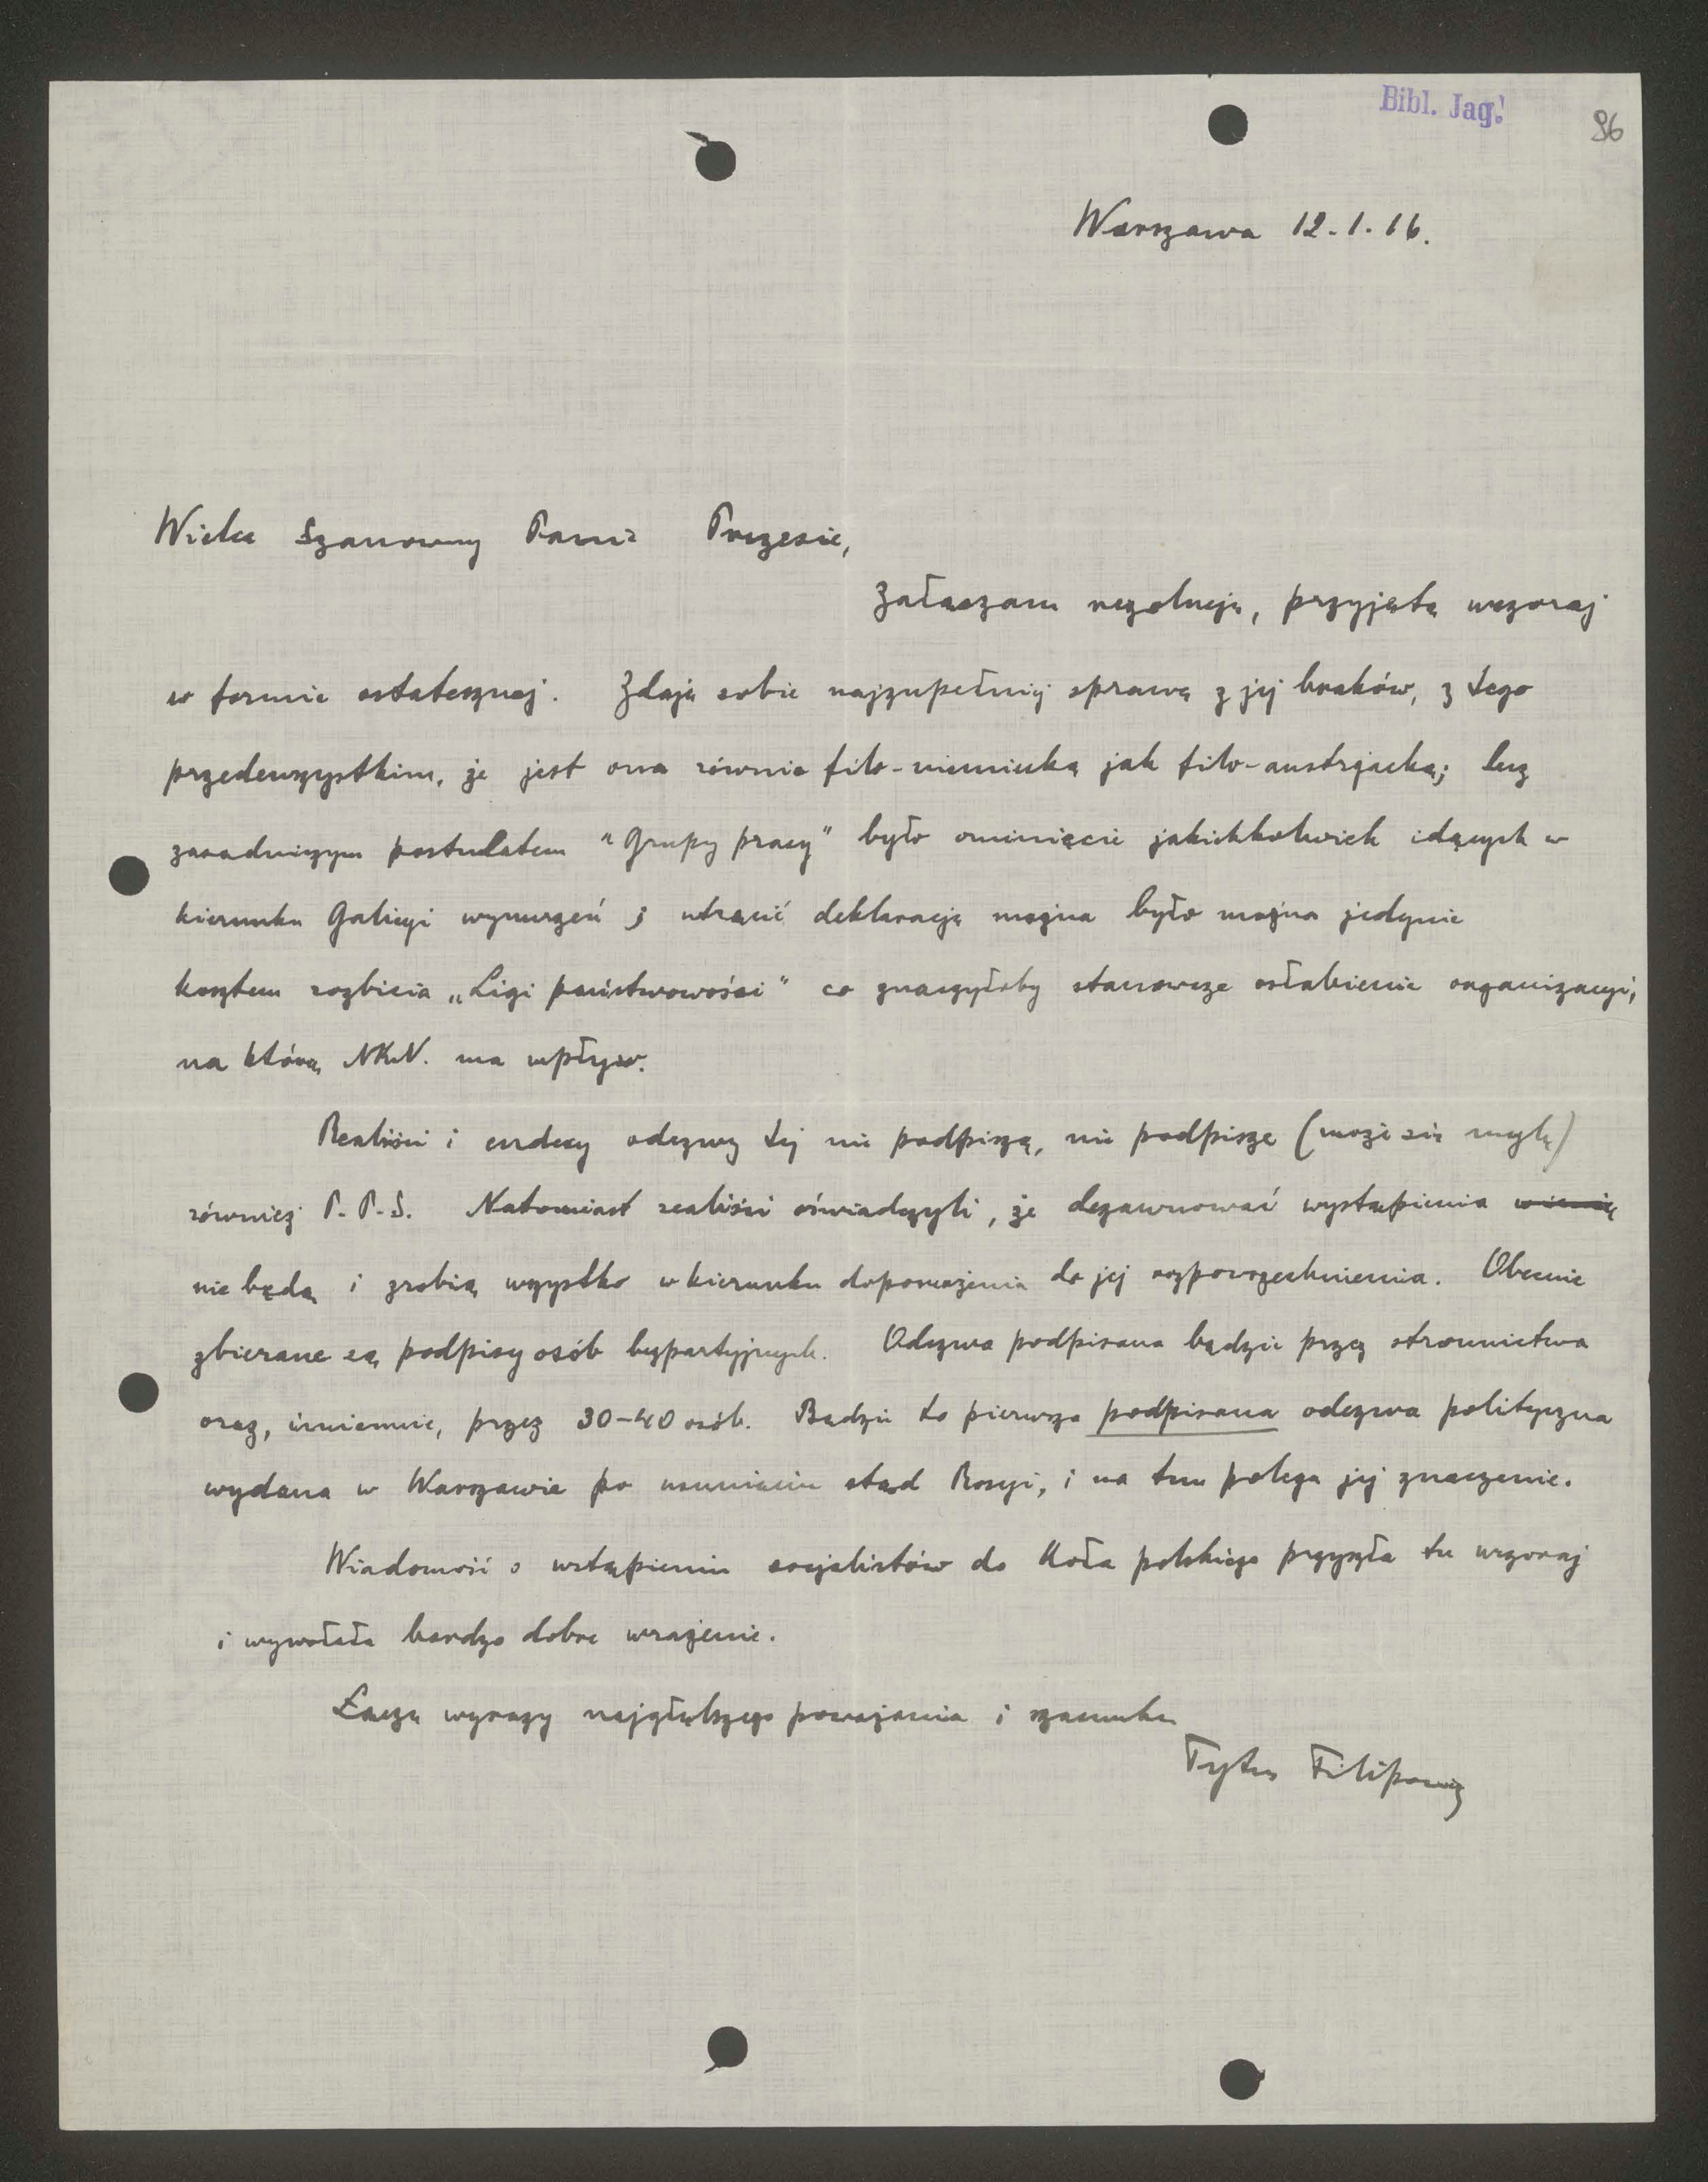 Bibl. Jag.
86
Warszawa 12.1.16.
Wielce Szanowny Panie Prezesie,
Załączam rezolucję, przyjętą wczoraj
w formie ostatecznej. Zdaję sobie najzupełniej sprawę z jej braków, z tego
przedewszystkim, że jest ona równie filo-niemiecką jak filo-austrjacką; lecz
zasadniczym postulatem "Grupy pracy" było ominięcie jakichkolwiek idących w
kierunku Galicyi wynurzeń; utrącić deklarację można było można jedynie
kosztem rozbicia „Ligi państwowości" co znaczyłoby stanowcze osłabienie organizacyi,
na którą NKN. ma wpływ.
Realiści i endecy odezwy tej nie podpiszą, nie podpisze (może się mylę)
również P.P.S. Natomiast realiści oświadczyli, że dezawuować wystąpienia
nie będą i zrobią wszystko w kierunku dopomożenia do jej rozpowszechnienia. Obecnie
zbierane są podpisy osób bezpartyjnych. Odezwa podpisana będzie przez stronnictwa
oraz, imiennie, przez 30-40 osób. Będzie to pierwsza podpisana odezwa polityczna
wydana w Warszawie po usunięciu stąd Rosyi, i na tem polega jej znaczenie.
Wiadomość o wstąpieniu socjalistów do Koła polskiego przyszła tu wczoraj
i wywołała bardzo dobre wrażenie.
Łączę wyrazy najgłębszego poważania i szacunku
Tytus Filipowicz